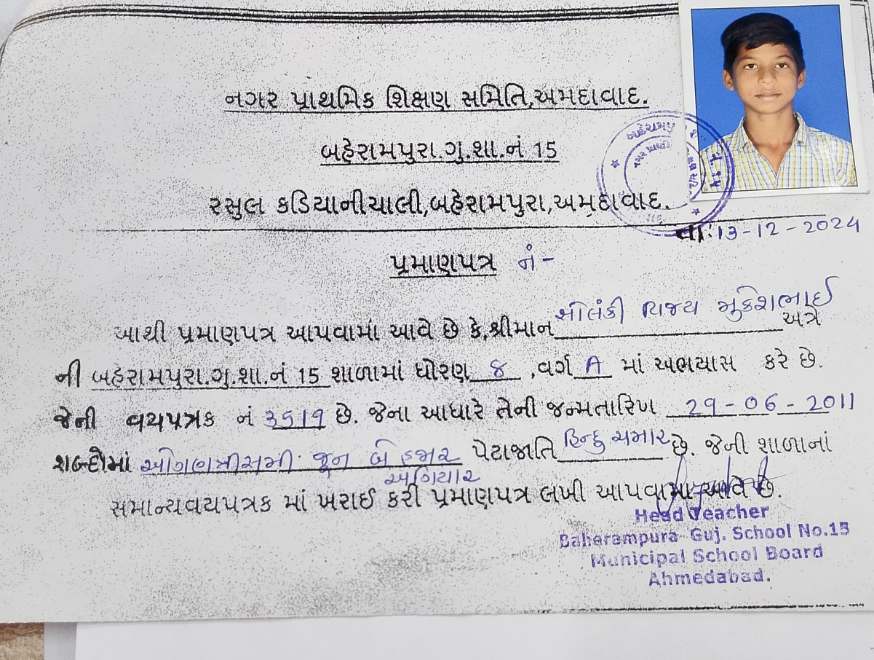 નગર પ્રાથમિક શિક્ષણ સમિતિ,અમદાવાદ.
બહેરામપુરા.ગુ.શા.નં 15
રસુલ કડિયાનીચાલી,બહેરામપુરા,અમદાવાદ.
તા:13-12-2024
પ્રમાણપત્ર નં-
આથી પ્રમાણપત્ર આપવામાં આવે છે કે,શ્રીમાન સોલંકી વિજય મુકેશભાઈ અત્રે
ની બહેરામપુરા.ગુ.શા.નં 15 શાળામાં ધોરણ 8 ,વર્ગ A માં અભયાસ કરે છે.
જેની વયપત્રક નં 3519 છે. જેના આધારે તેની જન્મતારિખ 29-06-2011
શબ્દોમાં ઓગણત્રીસમી જૂન બે હજાર અગિયાર પેટાજાતિ હિન્દુ ચમાર છે. જેની શાળાનાં
સમાન્યવયપત્રક માં ખરાઈ કરી પ્રમાણપત્ર લખી આપવામાં આવે છે.
Head Teacher
Baherampura Guj. School No.15
Municipal School Board
Ahmedabad.